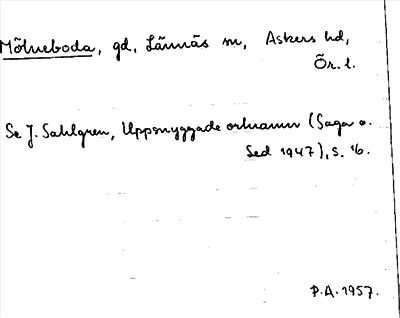 Mölneboda, gd, Lännäs sn, Askers hd,
Ör. l.
Se J. Sahlgren, Uppsnyggade ortnamn (Saga o.
Sed 1947), s. 16.
P.A. 1957.